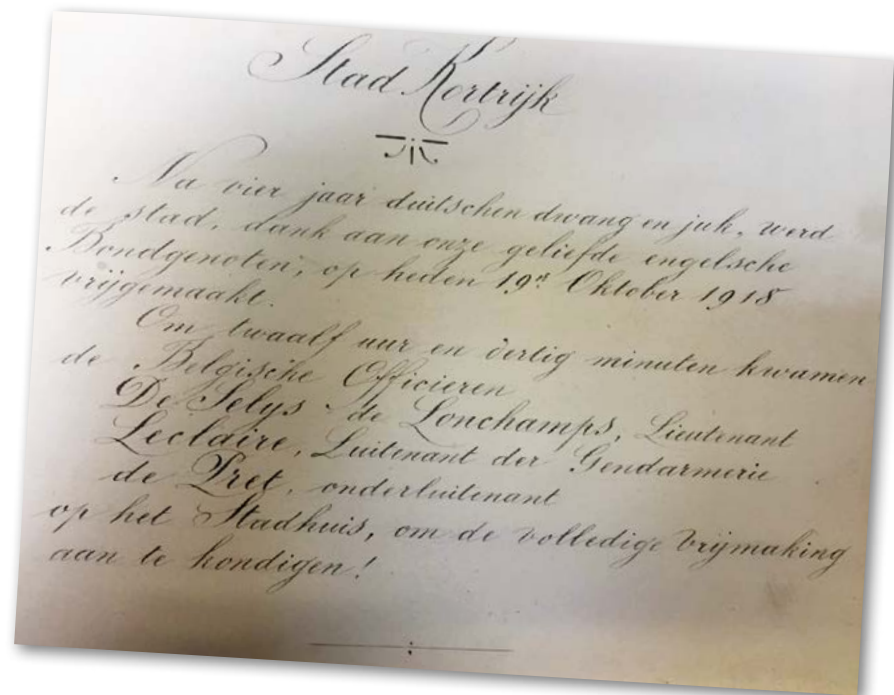 Stad Kortrijk
Na vier jaar duitschen dwang en juk, werd
de stad, dank aan onze geliefde engelsche
Bondgenoten, op heden 19n Oktober 1918
vrijgemaakt.
Om twaalf uur en dertig minuten kwamen
de Belgische Officieren
De Selys de Lonchamps, Lieutenant
Leclaire, Luitenant der Gendarmerie
de Pret, onderluitenant
op het Stadhuis, om de volledige vrijmaking
aan te kondigen!